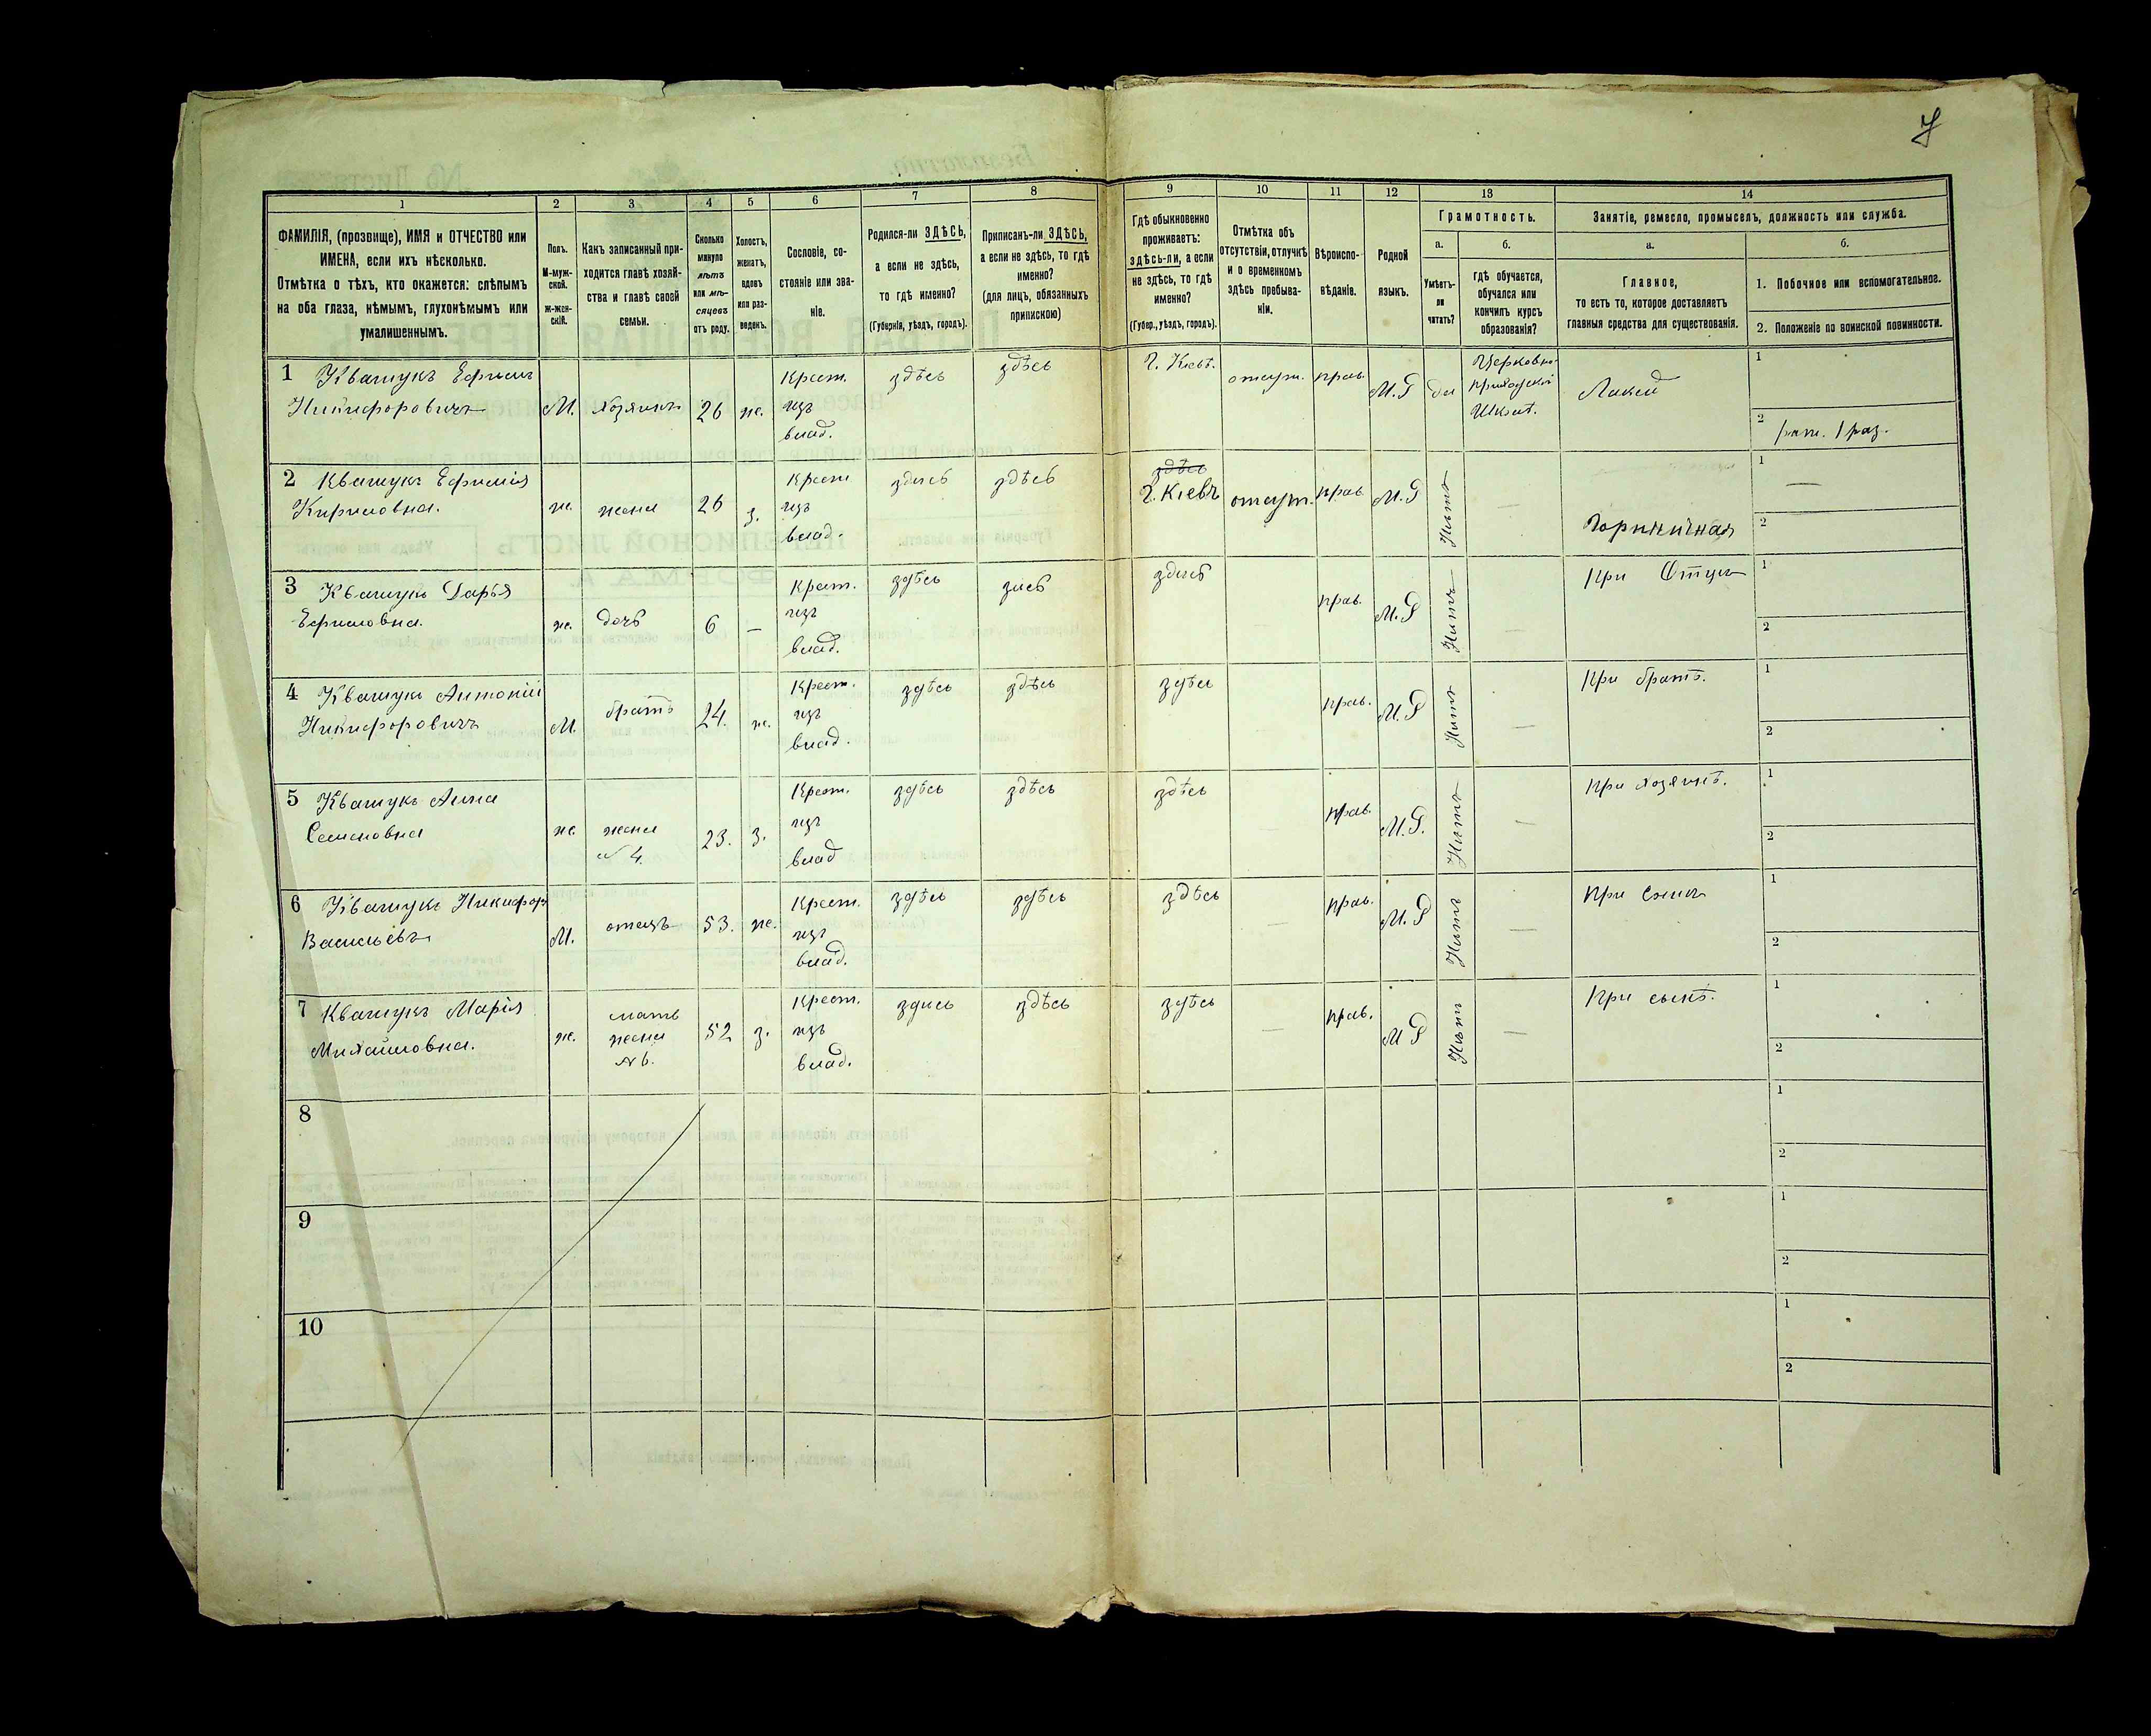 7
1 2 3 4 5 6 7 8 9 10 11 12 13 14
ФАМИЛІЯ, (прозвище), ИМЯ и ОТЧЕСТВО или
ИМЕНА, если ихъ нѣсколько.
Отмѣтка о тѣхъ, кто окажется: слѣпымъ
на оба глаза, нѣмымъ, глухонѣмымъ или
умалишеннымъ.
Полъ.
М-муж-
ской.
Ж-жен-
скій.
Какъ записанный при-
ходится главѣ хозяй-
ства и главѣ своей
семьи.
Сколько
минуло
лѣтъ
или мѣ-
сяцевъ
отъ роду.
Холостъ,
женатъ,
вдовъ
или раз-
веденъ.
Сословіе, со-
стояніе или зва-
ніе.
Родился-ли ЗДѢСЬ,
а если не здѣсь,
то гдѣ именно?
(Губернія, уѣздъ, городъ).
Приписанъ-ли ЗДѢСЬ,
а если не здѣсь, то гдѣ
именно?
(для лицъ, обязанныхъ
припискою)
Гдѣ обыкновенно
проживаетъ:
здѣсь-ли, а если
не здѣсь, то гдѣ
именно?
(Губер., уѣздъ, городъ).
Отмѣтка объ
отсутствіи, отлучкѣ
и о временномъ
здѣсь пребыва-
ніи.
Вѣроиспо-
вѣданіе.
Родной
языкъ.
Грамотность.
а.
Умѣетъ-
ли
читать?
б.
гдѣ обучается,
обучался или
кончилъ курсъ
образованія?
Занятіе, ремесло, промыселъ, должность или служба.
а.
Главное,
то есть то, которое доставляетъ
главныя средства для существованія.
б.
1. Побочное или вспомогательное.
2. Положеніе по воинской повинности.
1 Квашукъ Ефимъ
Никифоровичъ
М.
хозяинъ
26
ж.
Крест.
изъ
влад.
здѣсь
здѣсь
г. Кіевъ.
отсут.
прав.
М.Р
да
Церковно
приходской
Школ.
Лакей
1
2 рат. 1 раз.
2 Квашукъ Ефимія
Кириловна.
ж.
жена
26
з.
Крест
изъ
влад.
здись
здѣсь
здѣсь
г. Кіевъ
отсут.
прав.
М.Р
Нѣтъ
—
Горничная
1 —
2
3 Квашукъ Дарья
Ефимовна.
ж.
дочь
6
—
Крест.
изъ
влад.
здѣсь
зись
здись
прав.
М.Р
Нитъ
—
При Отцы
1
2
4 Квашукъ Антоній
Никифоровичъ
М.
братъ
24.
ж.
Крест.
изъ
влад.
здѣсь
здѣсь
здѣсь
прав.
М.Р
Нитъ
—
При братѣ.
1
2
5 Квашукъ Анна
Семеновна
ж.
жена
№ 4.
23.
з.
Крест.
изъ
влад
здѣсь
здѣсь
здѣсь
прав.
М.Р.
Нитъ
—
При хозяинѣ.
1
2
6 Квашукъ Никифор
Васильевъ
М.
отецъ
53.
ж.
Крест.
изъ
влад.
здѣсь
здѣсь
здѣсь
—
прав.
М.Р
Нитъ
—
При сыни
1
2
7 Квашукъ Марія
Михайловна.
ж.
мать
жена
№ 6.
52
з.
Крест.
изъ
влад.
здись
здѣсь
здѣсь
—
прав.
М Р
Нѣтъ
—
При сынѣ.
1
2
8
1
2
9
1
2
10
1
2